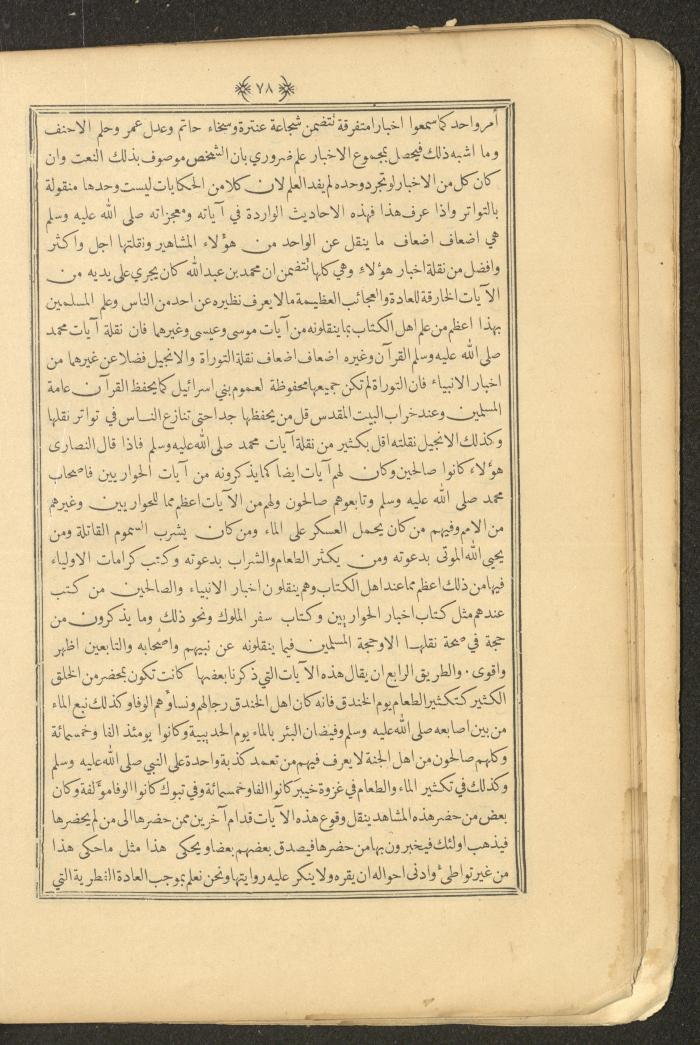 ﴿٧٨﴾
أمر واحد كما سمعوا اخبارا متفرقة تتضمن شجاعة عنترة وسخاء حاتم وعدل عمر وحلم الاحنف
وما اشبه ذلك فيحصل بمجموع الاخبار علم ضروري بان الشخص موصوف بذلك النعت وان
كان كل من الاخبار لو تجرد وحده لم يفد العلم لان كلا من الحكايات ليست وحدها منقولة
بالتواتر واذا عرف هذا فهذه الاحاديث الواردة في آياته ومعجزاته صلى الله عليه وسلم
هي اضعاف اضعاف ما ينقل عن الواحد من هؤلاء المشاهير ونقلتها اجل واكثر
وافضل من نقلة اخبار هؤلاء وهي كلها تتضمن ان محمد بن عبد الله كان يجري على يديه من
الآيات الخارقة للعادة والعجائب العظيمة ما لا يعرف نظيره عن احد من الناس وعلم المسلمين
بهذا اعظم من علم اهل الكتاب بما ينقلونه من آيات موسى وعيسى وغيرهما فان نقلة آيات محمد
صلى الله عليه وسلم القرآن وغيره اضعاف اضعاف نقلة التوراة والانجيل فضلا عن غيرهما من
اخبار الانبياء فان التوراة لم تكن جميعها محفوظة لعموم بني اسرائيل كما يحفظ القرآن عامة
المسلمين وعند خراب البيت المقدس قل من يحفظها جدا حتى تنازع الناس في تواتر نقلها
وكذلك الانجيل نقلته اقل بكثير من نقلة آيات محمد صلى الله عليه وسلم فاذا قال النصارى
هؤلاء كانوا صالحين وكان لهم آيات ايضا كما يذكرونه من آيات الحواريين فاصحاب
محمد صلى الله عليه وسلم وتابعوهم صالحون ولهم من الآيات اعظم مما للحواريين وغيرهم
من الامم وفيهم من كان يحمل العسكر على الماء ومن كان يشرب السموم القاتلة ومن
يحيي الله الموتى بدعوته ومن يكثر الطعام والشراب بدعوته وكتب كرامات الاولياء
فيها من ذلك اعظم مما عند اهل الكتاب وهم ينقلون اخبار الانبياء والصالحين من كتب
عندهم مثل كتاب اخبار الحواريين وكتاب سفر الملوك ونحو ذلك وما يذكرون من
حجة في صحة نقلها الا وحجة المسلمين فيما ينقلونه عن نبيهم واصحابه والتابعين اظهر
واقوى . والطريق الرابع ان يقال هذه الآيات التي ذكرنا بعضها كانت تكون بمحضر من الخلق
الكثير كتكثير الطعام يوم الخندق فانه كان اهل الخندق رجالهم ونساؤهم الوفا وكذلك نبع الماء
من بين اصابعه صلى الله عليه وسلم وفيضان البئر بالماء يوم الحديبية وكانوا يومئذ الفا وخمسمائة
وكلهم صالحون من اهل الجنة لا يعرف فيهم من تعمد كذبة واحدة على النبي صلى الله عليه وسلم
وكذلك في تكثير الماء والطعام في غزوة خيبر كانوا الفا وخمسمائة وفي تبوك كانوا الوفا مؤلفة وكان
بعض من حضر هذه المشاهد ينقل وقوع هذه الآيات قدام آخرين ممن حضرها الى من لم يحضرها
فيذهب اولئك فيخبرون بها من حضرها فيصدق بعضهم بعضا ويحكي هذا مثل ما حكى هذا
من غير تواطئ وادنى احواله ان يقره ولا ينكر عليه روايتها ونحن نعلم بموجب العادة الفطرية التي